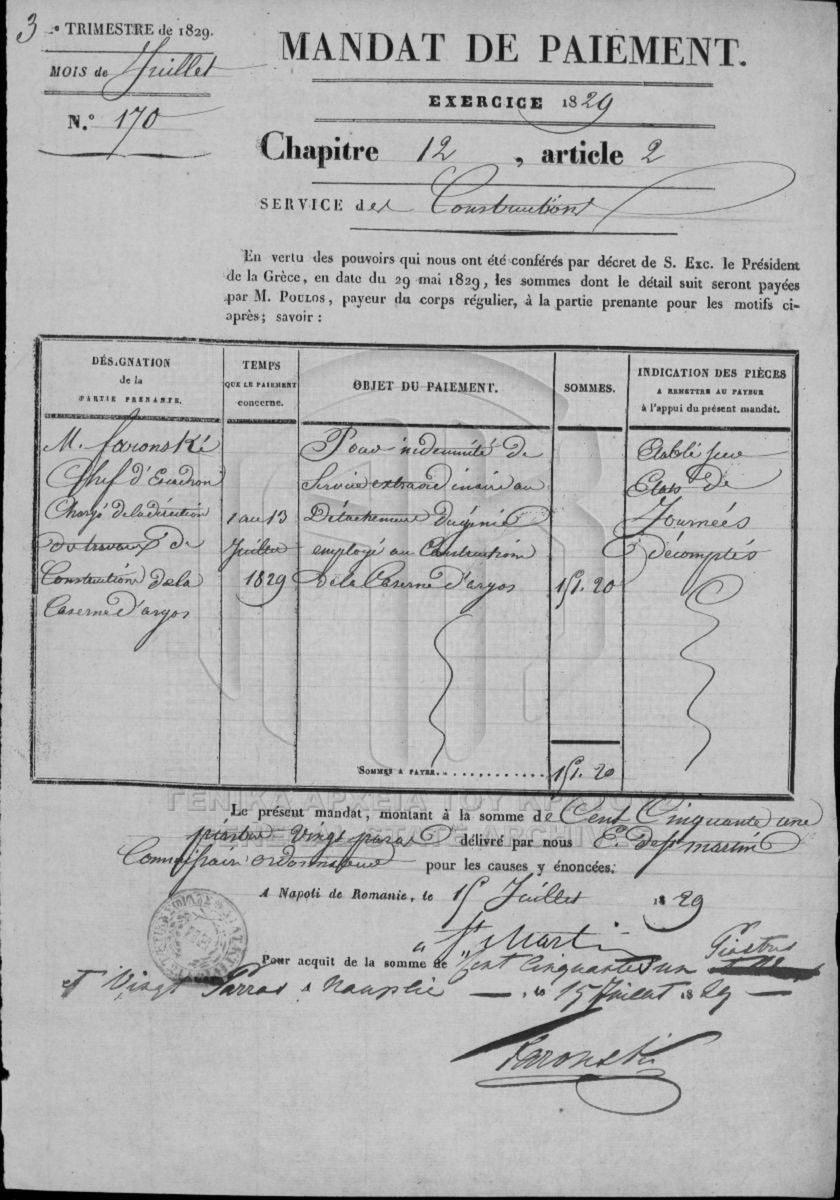 3e TRIMESTRE de 1829.
MOIS de Juillet
N.° 170
MANDAT DE PAIEMENT.
EXERCICE 1829
Chapitre 12, article 2
SERVICE des Constructions
En vertu des pouvoirs qui nous ont été conférés par décret de S. Exc. le Président
de la Grèce, en date du 29 mai 1829, les sommes dont le détail suit seront payées
par M. POULOS, payeur du corps régulier, à la partie prenante pour les motifs ci-
après; savoir :
DÉSIGNATION
de la
PARTIE PRENANTE.
M. faronské
Chef d'Escadron
Chargé de la direction
des travaux de
Construction de la
Caserne d'argos
TEMPS
QUE LE PAIEMENT
concerne.
1 au 13
Juillet
1829
OBJET DU PAIEMENT.
Pour indemnité de
Service extraordinaire au
Détachement du génie
employé au Construction
De la Caserne d'argos
SOMMES.
151.20
INDICATION DES PIÈCES
A REMETTRE AU PAYEUR
à l'appui du présent mandat.
Etablé sur
Etats de
Journées
Décomptés
SOMMES A PAYER. 151.20
ΓΕΝΙΚΑ ΑΡΧΕΙΑ ΤΟΥ ΚΡΑΤΟΥΣ
GENERAL STATE ARCHIVES
Le présent mandat, montant à la somme de Cent Cinquante une
piastres Vingt paras délivré par nous E. de St martin
Commissaire ordonnateur pour les causes y énoncées.
A Napoli de Romanie, le 15 Juillet 1829
St Martin
Pour acquit de la somme de Cent Cinquante un Piastres
et Vingt Parras a Nauplie le 15 Juillet 1829